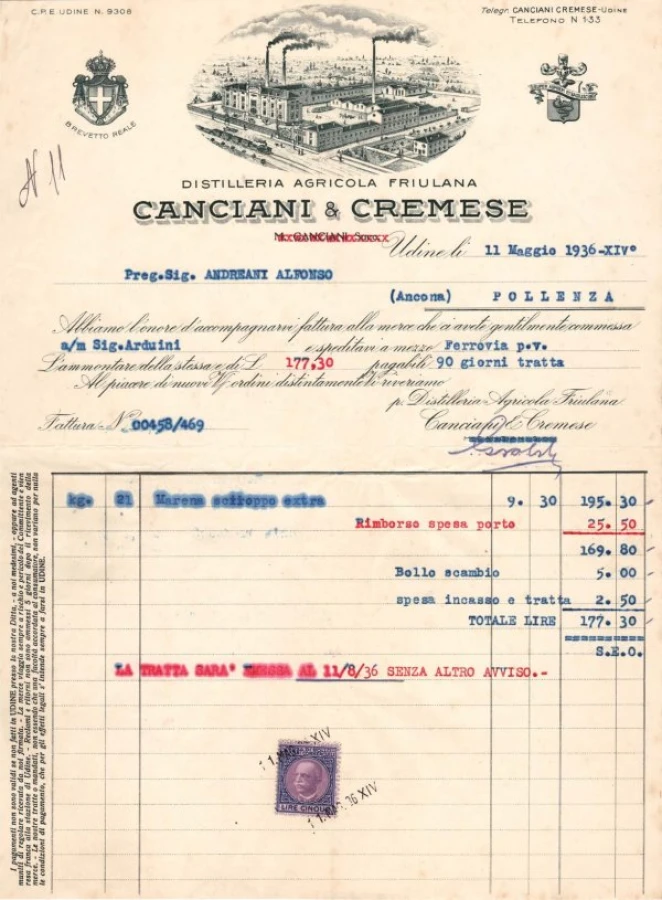 C.P.E UDINE N. 9308
Telegr. CANCIANI CREMESE-UDINE
TELEFONO N 1·33
BREVETTO REALE
N 11
DISTILLERIA AGRICOLA FRIULANA
CANCIANI & CREMESE
M. CANCIANI Succ.
Udine li 11 Maggio 1936-XIV°
Preg.Sig. ANDREANI ALFONSO
(Ancona) POLLENZA
Abbiamo l'onore d'accompagnarvi fattura alla merce che ci avete gentilmente commessa
a/m Sig.Arduini e speditavi a mezzo Ferrovia p.v.
L'ammontare della stessa e di L. 177,30 pagabili 90 giorni tratta
Al piacere di nuovi V/ ordini distintamente Vi riveriamo
p. Distilleria Agricola Friulana
Canciani & Cremese
Fattura N° 00458/469
kg. 21 Marena sciroppo extra 9. 30 195. 30
Rimborso spesa porto 25. 50
169. 80
Bollo scambio 5. 00
spesa incasso e tratta 2. 50
TOTALE LIRE 177. 30
S.E.O.
LA TRATTA SARA' EMESSA AL 11/8/36 SENZA ALTRO AVVISO.-
XIV
LIRE CINQUE
11 MAG. 36 XIV
I pagamenti non sono validi se non fatti in UDINE presso la nostra Ditta, - a noi medesimi, - oppure ad agenti
muniti di regolare ricevuta da noi firmata. - La merce viaggia sempre a rischio e pericolo del Committente e vien
resa franco alla stazione di Udine. - Reclami e ritorni non sono ammessi 5 giorni dopo il ricevimento della
merce. - Le nostre tratte o mandati, non essendo che una facilità accordata al consumatore, non variano per nulla
le condizioni di pagamento, che per gli effetti legali s'intende sempre a farsi in UDINE.